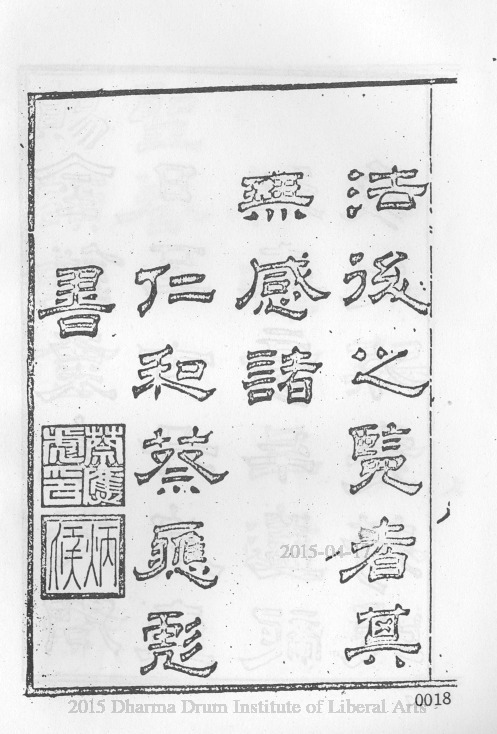 法後之覽者其
無感諸
仁和蔡應彪
書
蔡應彪印
炳侯
2015-04-17
0018
2015 Dharma Drum Institute of Liberal Arts